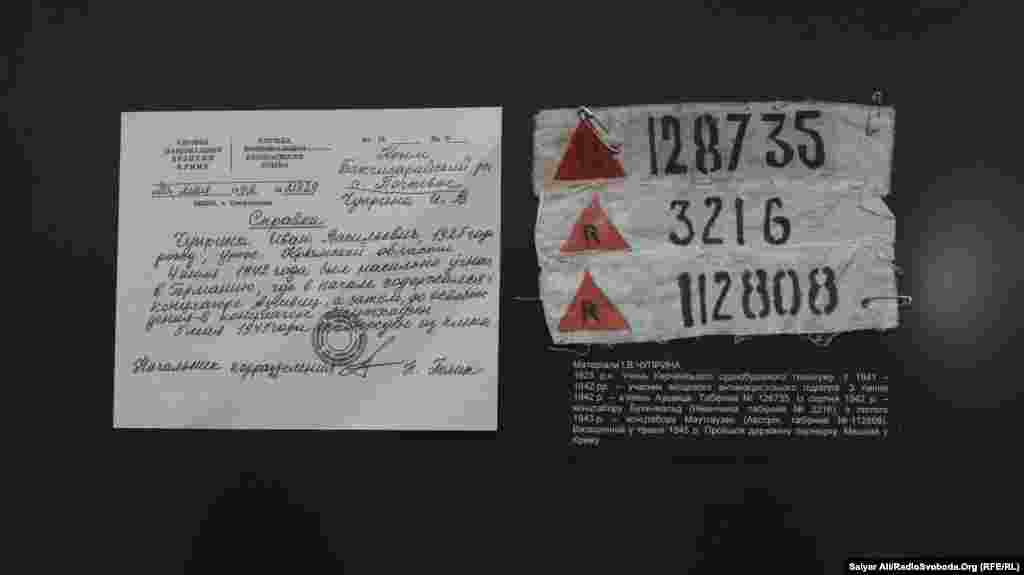 СЛУЖБА
НАЦІОНАЛЬНОЇ
БЕЗПЕКИ
КРИМУ
СЛУЖБА
КРЫМА
Крым
Бахчисарайский р-н
п. Почтовое
Чуприна И. В.
Справка
Чуприна Иван Васильевич, 1925 года
рожд., урож. Крымской области
4 июля 1942 года был насильно угнан
в Германию, где в начале содержался в
концлагере а затем, до освобож
дения в концлагере Маутхаузен
6 мая 1945 года из плена
Начальник подразделения
128735
R 3216
R 112808
Матеріали І.В. ЧУПРИНА
1925 р.н. Учень Керченського технікуму. У 1941 –
1942 рр. – учасник місцевого антинацистського підпілля. З липня
1942 р. – в'язень Аушвіца. Табірний № 128735. Із серпня 1942 р. –
концтабору Бухенвальд (Німеччина, табірний № 3216), з лютого
1943 р. – концтабору Маутхаузен (Австрія, табірний № 112808).
Визволений у травні 1945 р. Пройшов державну перевірку. Мешкав у
Криму
Saiyar Ali/RadioSvoboda.Org (RFE/RL)